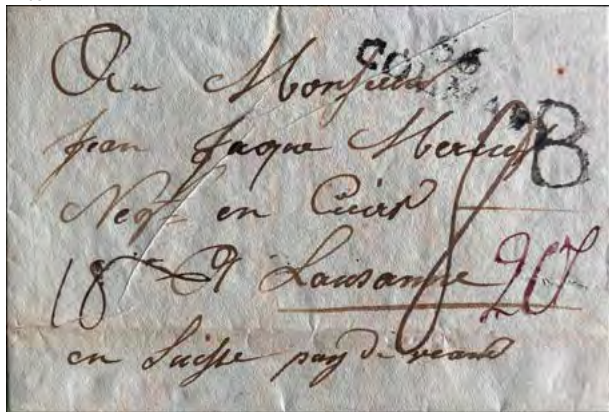 A Monsieur
Jean Jaque
Negt en Cuirs
18 A Lausanne 20
en Suisse pay de veaud
B